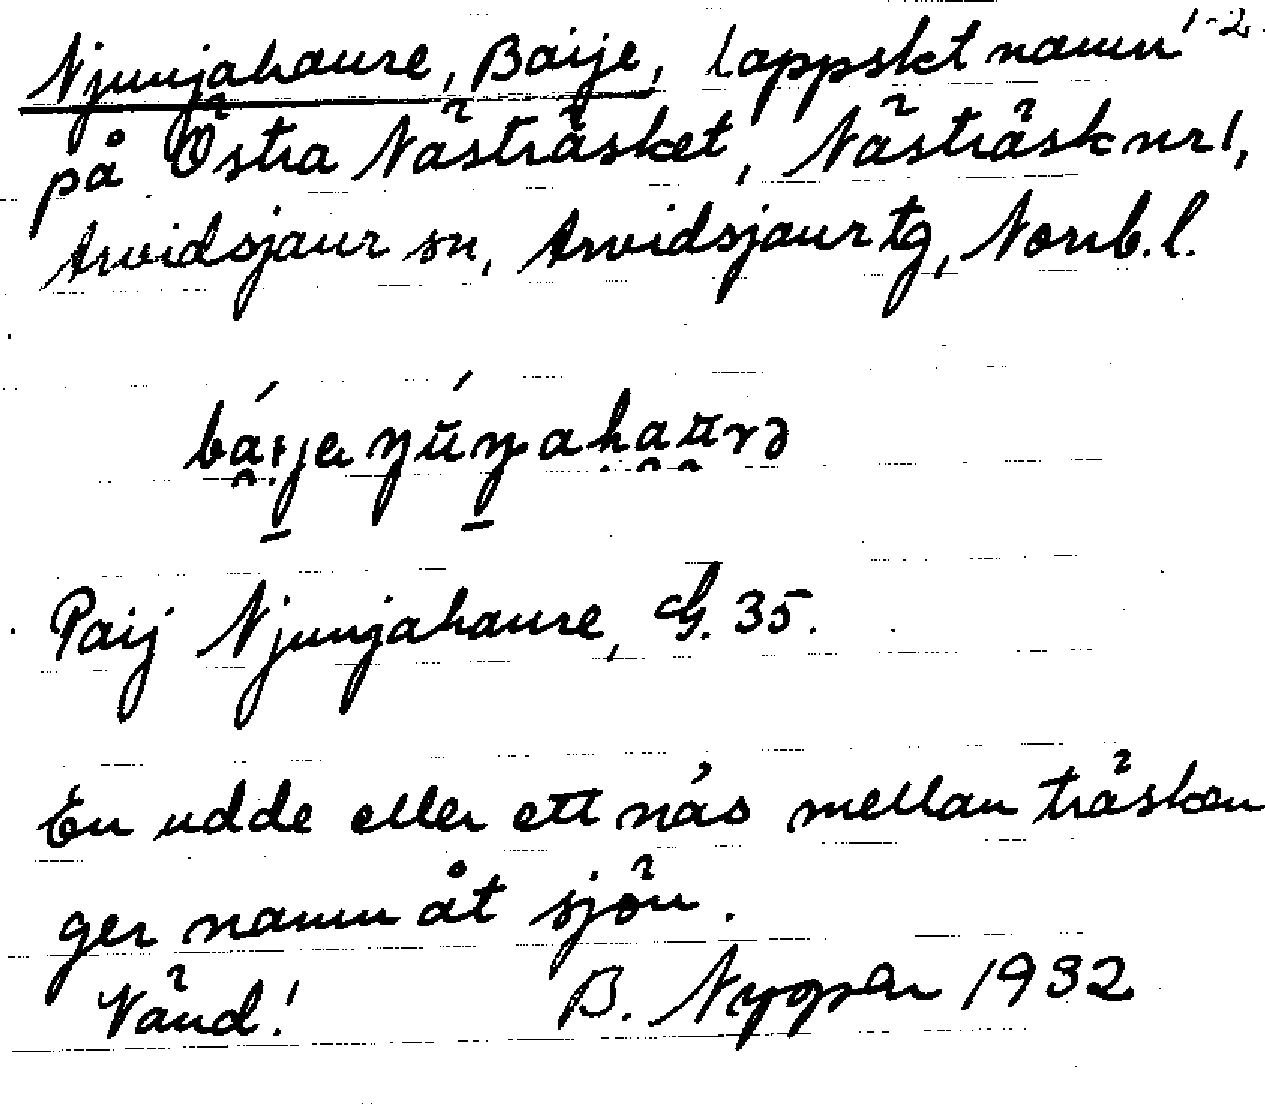 Njunjahaure, Baije, lappskt namn 1-2.
på Östra Nästräsket, Nästräsk nr 1,
Arvidsjaur sn, Arvidsjaur tg, Norrb. l.
Paij Njunjahaure, G. 35.
En udde eller ett näs mellan träsken
ger namn åt sjön.
Vänd! B. Nygren 1932